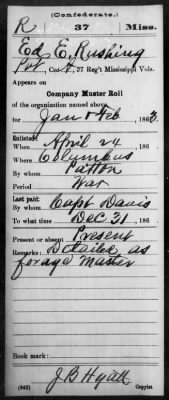 (Confederate.)
R 37 Miss.
Ed E. Rushing
Pvt, Co. , 37 Reg't Mississippi Vols.
Appears on
Company Muster Roll
of the organization named above,
for Jan & Feb, 1863.
Enlisted:
When April 24, 186 .
Where Columbus
By whom Patton
Period War
Last paid:
By whom Capt Davis
To what time Dec 31, 186 .
Present or absent Present
Remarks: Detailed as
forage master
Book mark:
J B Hyatt
(642) Copyist.